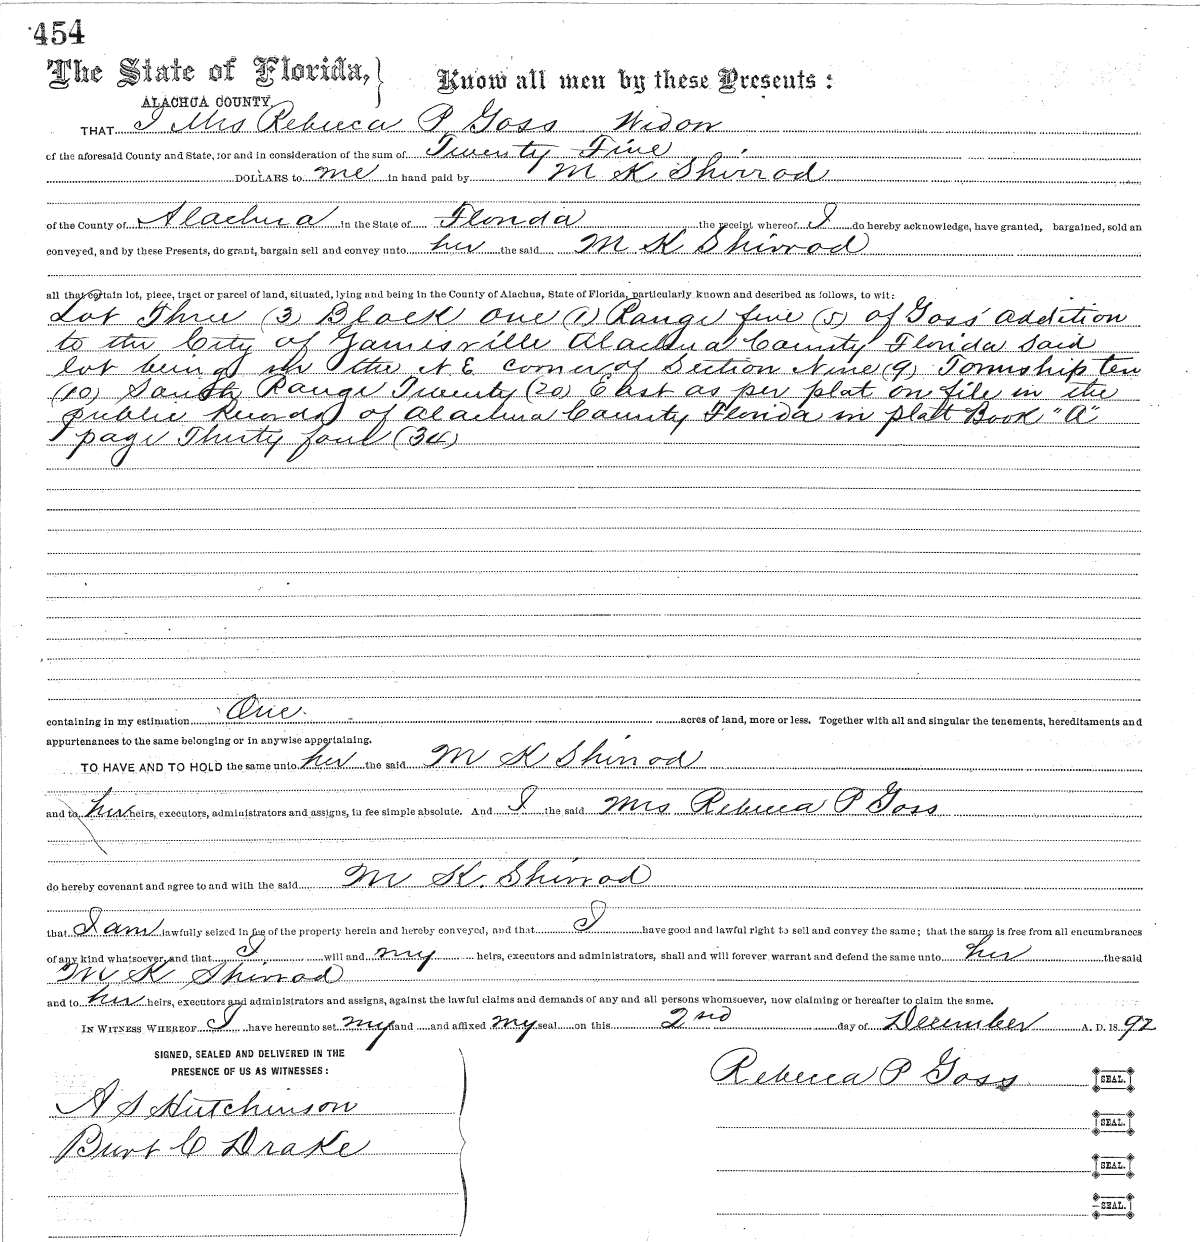 454
The State of Florida,} Know all men by these Presents:
ALACHUA COUNTY.
THAT I Mrs Rebecca P Goss Widow
of the aforesaid County and State, for and in consideration of the sum of Twenty Five
DOLLARS to me in hand paid by M K Shirrod
of the County of Alachua in the State of Florida the receipt whereof I do hereby acknowledge, have granted, bargained, sold an
conveyed, and by these Presents, do grant, bargain sell and convey unto her the said M K Shirrod
all that certain lot, piece, tract or parcel of land, situated, lying and being in the County of Alachua, State of Florida, particularly known and described as follows, to wit:
Lot Three (3) Block One (1) Range five (5) of Goss' addition
to the City of Gainesville Alachua County Florida Said
lot being in the N.E. corner of Section Nine (9) Township ten
(10) South Range Twenty (20) East as per plat on file in the
public Records of Alachua County Florida in plat Book "A"
page Thirty four (34)
containing in my estimation One acres of land, more or less. Together with all and singular the tenements, hereditaments and
appurtenances to the same belonging or in anywise appertaining.
TO HAVE AND TO HOLD the same unto her the said M K Shirrod
and to her heirs, executors, administrators and assigns, in fee simple absolute. And I the said Mrs Rebecca P Goss
do hereby covenant and agree to and with the said M K. Shirrod
that I am lawfully seized in fee of the property herein and hereby conveyed, and that I have good and lawful right to sell and convey the same; that the same is free from all encumbrances
of any kind whatsoever, and that I will and my heirs, executors and administrators, shall and will forever warrant and defend the same unto her the said
M K Shirrod
and to her heirs, executors and administrators and assigns, against the lawful claims and demands of any and all persons whomsoever, now claiming or hereafter to claim the same.
IN WITNESS WHEREOF I have hereunto set my hand and affixed my seal on this 2nd day of December A. D. 18 92
SIGNED, SEALED AND DELIVERED IN THE
PRESENCE OF US AS WITNESSES:
Rebecca P Goss SEAL.
A S Hutchinson
SEAL.
Burt C Drake
SEAL.
SEAL.